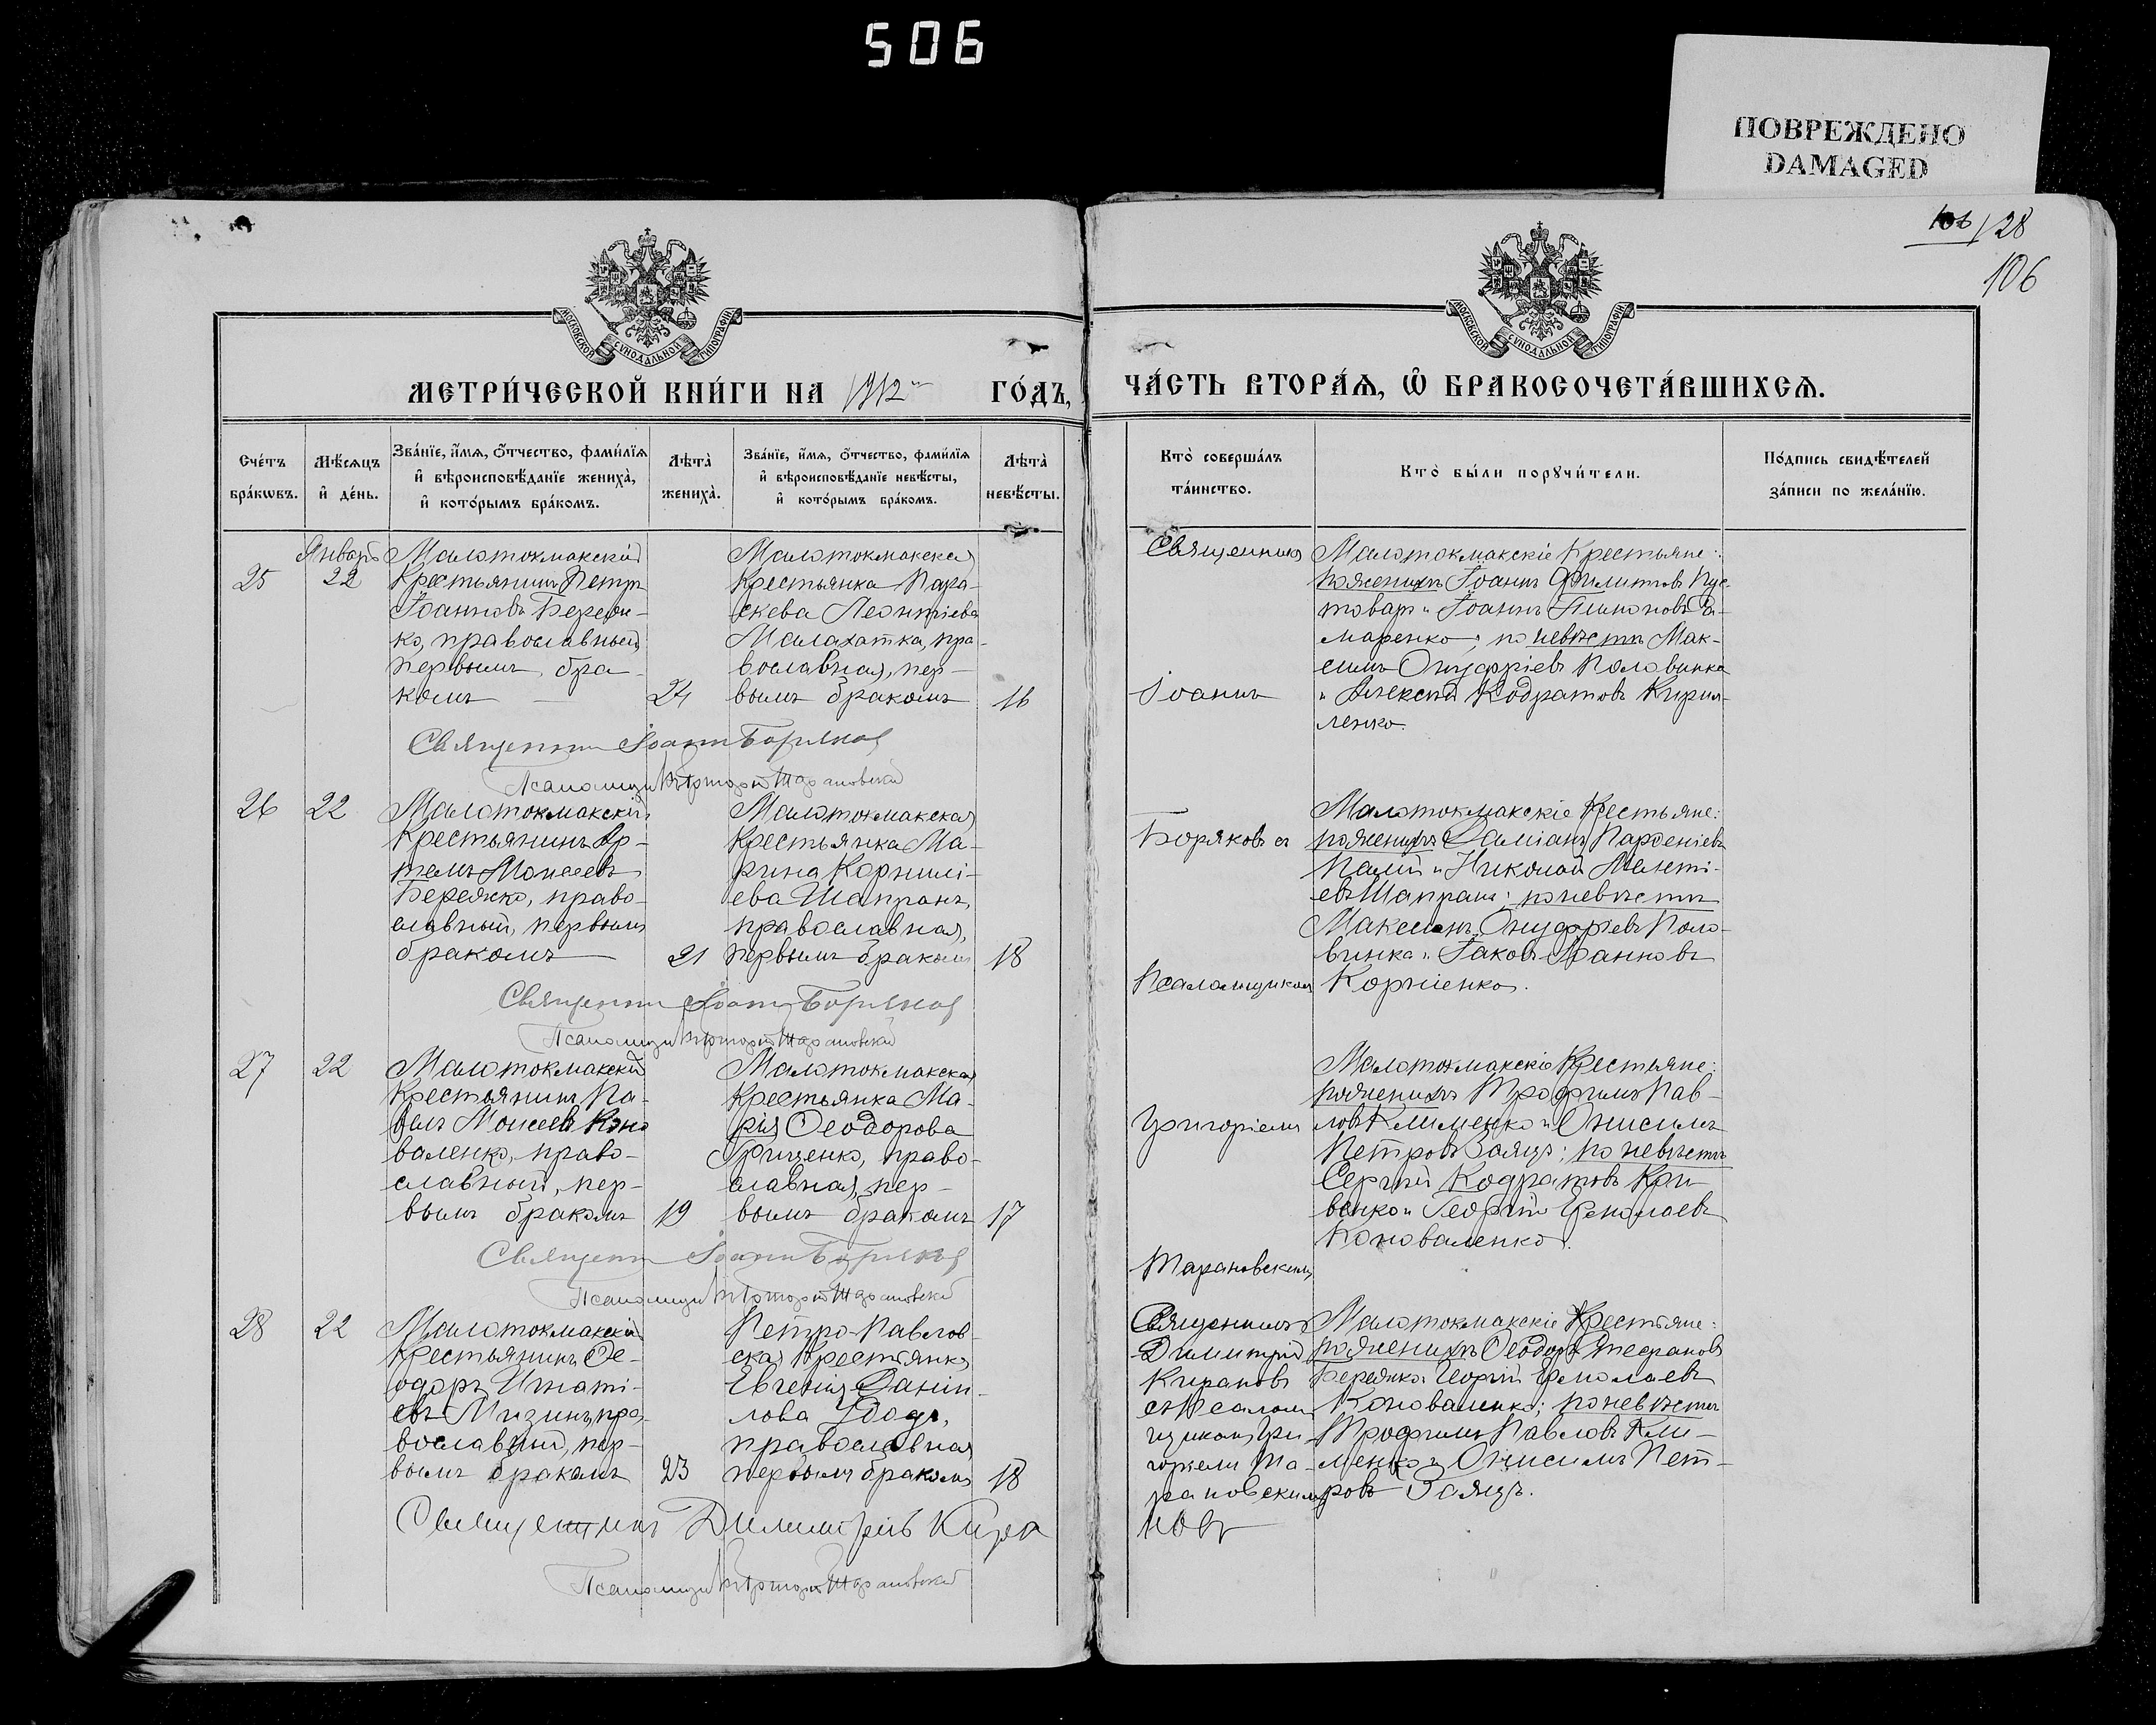 506
ПОВРЕЖДЕНО
DAMAGED
106/128
106
МОСКОВСКОЙ СѴНОДАЛЬНОЙ ТИПОГРАФІИ
МОСКОВСКОЙ СѴНОДАЛЬНОЙ ТИПОГРАФІИ
МЕТРИ́ЧЕСКОЙ КНИ́ГИ НА 1912 ГО́ДЪ,
ЧА́СТЬ ВТОРА́Ѧ, Ѡ҆ БРАКОСОЧЕТА́ВШИХСѦ.
Сче́тъ бра́кѡвъ.
Мѣ́сѧцъ и҆ де́нь.
Зва́нїе, и҆́мѧ, ѻ҆́тчество, фами́лїѧ и҆ вѣроисповѣ́данїе жениха̀, и҆ кото́рымъ бра́комъ.
Лѣта̀ жениха̀.
Зва́нїе, и҆́мѧ, ѻ҆́тчество, фами́лїѧ и҆ вѣроисповѣ́данїе невѣ́сты, и҆ кото́рымъ бра́комъ.
Лѣта̀ невѣ́сты.
Кто̀ соверша́лъ та́инство.
Кто̀ бы́ли порꙋчи́тели.
По́дпись свидѣ́телей за́писи по жела́нїю.
25
Январь
22
Малотокмакскій
Крестьянинъ Петръ
Іоанновъ Береж-
ко, православный,
первымъ бра-
комъ
24
Малотокмакская
Крестьянка Пара-
скева Леонтіева
Малахатка, пра-
вославная, пер-
вымъ бракомъ
16
Малотокмакскіе Крестьяне:
по женихѣ Іоаннъ Филиповъ Пус-
товаръ и Іоаннъ
маренко; по невѣстѣ Мак-
симъ Онуфріевъ Половинка
и Алексѣй Кодратовъ Кирил-
ленко.
Священникъ Іоаннъ Боряковъ
Псаломщикъ Григорій Тарановскій
26
22
Малотокмакскій
Крестьянинъ Ар-
темъ Моисеевъ
Бережко, право-
славный, первымъ
бракомъ
21
Малотокмакская
Крестьянка Ма-
рина Корнилі-
ева Шапранъ,
православная,
первымъ бракомъ
18
Малотокмакскіе Крестьяне:
по женихѣ Даміанъ Парѳеніевъ
Палій и Николай Мелеті-
евъ Шапранъ; по невѣстѣ
Максимъ Онуфріевъ Поло-
винка и Іаковъ Іоанновъ
Корніенко.
Священникъ Іоаннъ Боряковъ
Псаломщикъ Григорій Тарановскій
27
22
Малотокмакскій
Крестьянинъ Па-
велъ Моисеевъ Коно
валенко, право-
славный, пер-
вымъ бракомъ
19
Малотокмакская
Крестьянка Ма-
рія Ѳеодорова
Гриценко, право-
славная, пер-
вымъ бракомъ
17
Малотокмакскіе Крестьяне:
по женихѣ Трофимъ Пав-
ловъ Клименко и Онисимъ
Петровъ Заяцъ; по невѣстѣ
Сергій Кодратовъ Кри
венко и Георгій Ермолаевъ
Коноваленко.
Священникъ Іоаннъ Боряковъ
Псаломщикъ Григорій Тарановскій
Священникъ
Іоаннъ
Боряковъ съ
Псаломщикомъ
Григоріемъ
Тарановскимъ
28
22
Малотокмакскій
Крестьянинъ Ѳе-
одоръ Игнаті-
евъ Мизинъ, пра-
вославный, пер-
вымъ бракомъ
23
Петро-Павлов-
ская Крестьянка
Евгенія Даніи-
лова
православная
первымъ бракомъ
18
Священникъ
Димитрій
Кирановъ
съ Псалом
щикомъ Гри
горіемъ Та-
рановскимъ
Малотокмакскіе Крестьяне:
по женихѣ Ѳеодоръ Стефановъ
Бережко и Георгій Ермолаевъ
Коноваленко; по невѣстѣ
Трофимъ Павловъ Кли-
менко и Онисимъ Пет-
ровъ Заяцъ.
Священникъ Димитрій Кира
новъ
Псаломщикъ Григорій Тарановскій